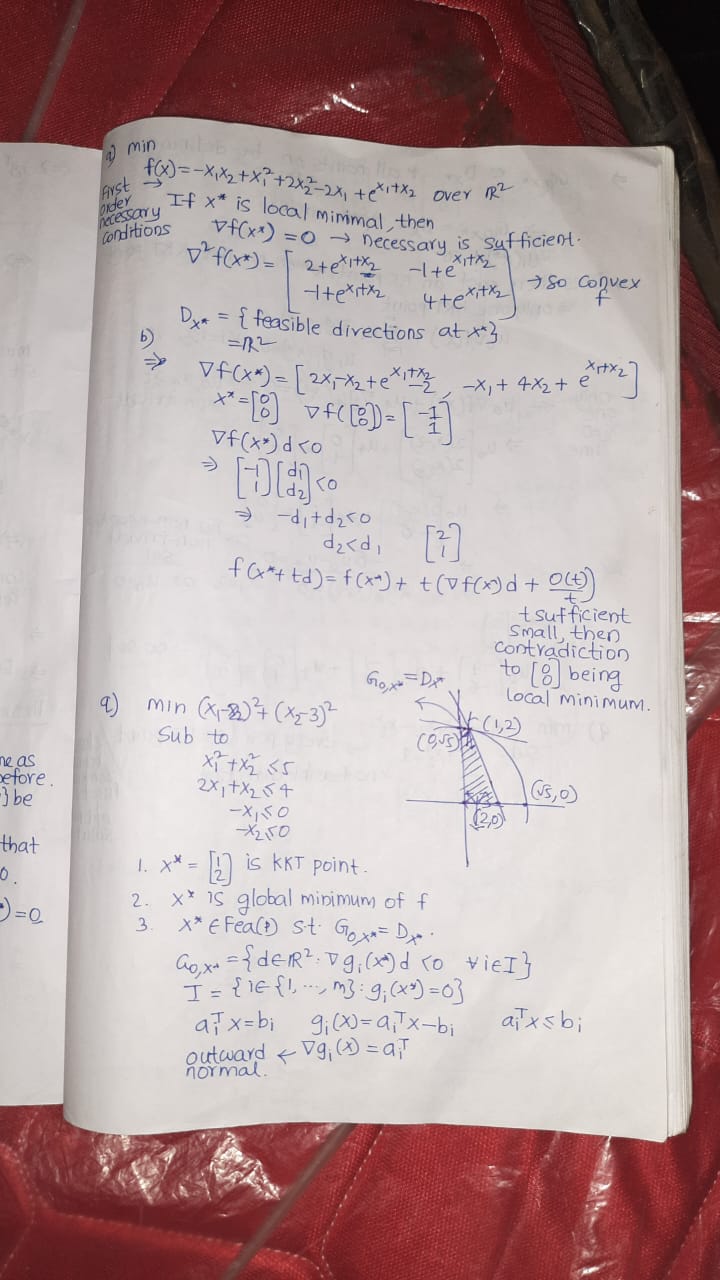 a) min
f(x)=-x₁x₂+x₁²+2x₂²-2x₁+e^(x₁+x₂) over ℝ²
First order necessary conditions → If x* is local minimal, then
∇f(x*)=0 → necessary is sufficient.
∇²f(x*) = [2+e^(x₁+x₂) -1+e^(x₁+x₂)
-1+e^(x₁+x₂) 4+e^(x₁+x₂)] → so convex f
D_x* = {feasible directions at x*}
=ℝ²
b)
⇒ ∇f(x*)=[2x₁-x₂+e^(x₁+x₂)-2, -x₁+4x₂+e^(x₁+x₂)]
x*=[0 0] ∇f([0 0])=[-1 1]
∇f(x*)d<0
⇒ [-1 1][d₁ d₂]<0
⇒ -d₁+d₂<0
d₂<d₁ [2 1]
f(x*+td)=f(x*)+t(∇f(x*)d+O(t)/t)
t sufficient
small, then
contradiction
to [0 0] being
local minimum.
q) min (x₁-3)²+(x₂-3)²
Sub to
x₁²+x₂²≤5
2x₁+x₂≤4
-x₁≤0
-x₂≤0
G₀,x*=D_x*
(1,2)
(0,√5)
(√5,0)
(2,0)
1. x*=[1 2] is KKT point.
2. x* is global minimum of f
3. x*∈Fea(P) s.t. G₀,x*=D_x*.
G₀,x*={d∈ℝ²:∇gᵢ(x*)d<0 ∀i∈I}
I={i∈{1,...,m}:gᵢ(x*)=0}
aᵢᵀx=bᵢ gᵢ(x)=aᵢᵀx-bᵢ aᵢᵀx≤bᵢ
outward normal. ← ∇gᵢ(x)=aᵢᵀ
me as
before.
} be
that
0.
)=0